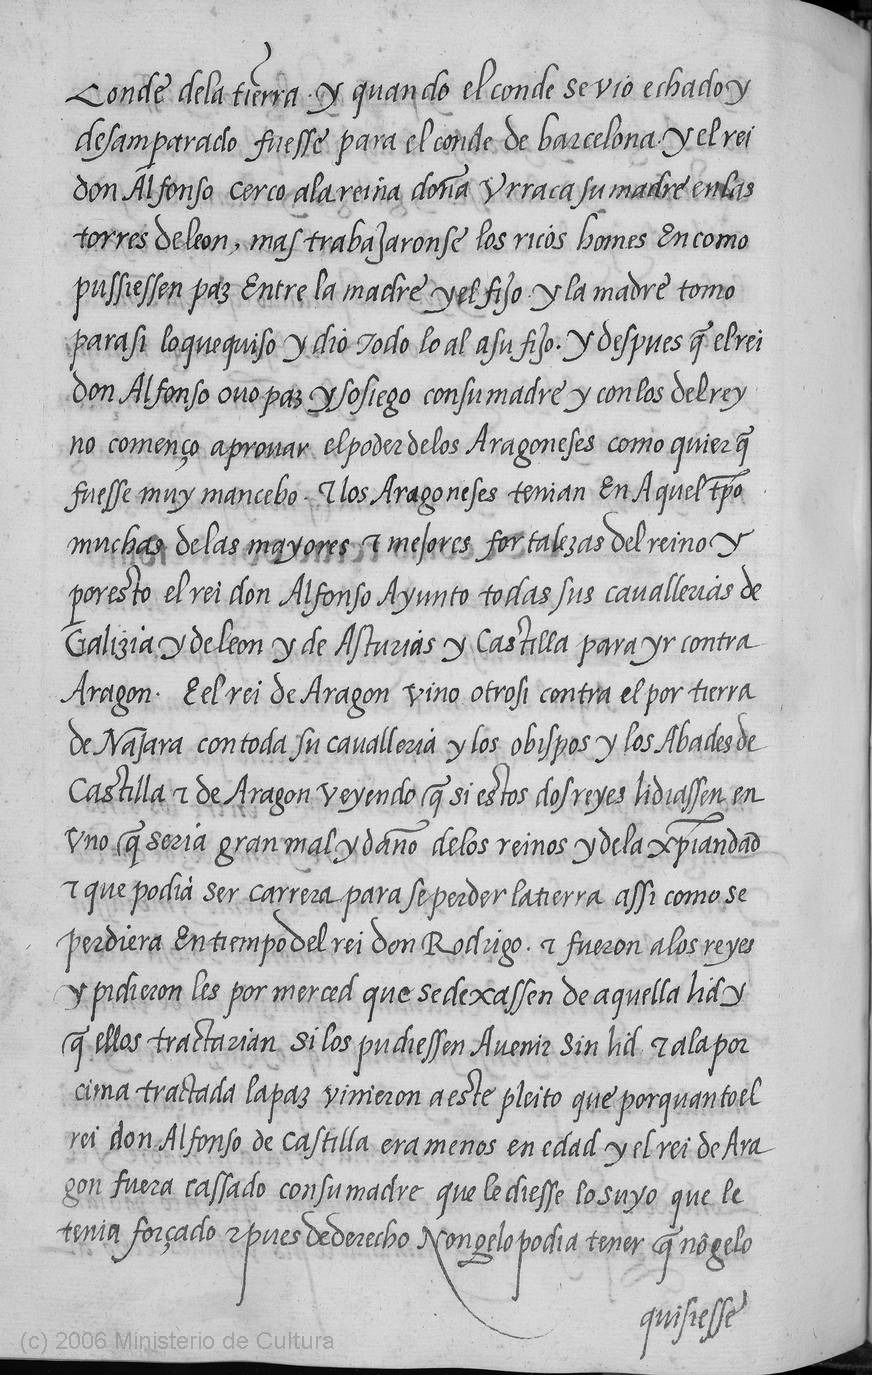 Conde dela tierra. y quando el conde se vio echado y
desamparado fuesse para el conde de barcelona. y el rei
don Alfonso cerco ala reina doña Vrraca su madre enlas
torres de leon, mas trabajaronse los ricos homes En como
pussiessen paz Entre la madre y el fijo. y la madre tomo
parasi loquequiso y dio Todo lo al asu fijo. y despues q̃ el rei
don Alfonso ouo paz y sosiego consu madre y conlos del rey
no començo aprouar el poder delos Aragoneses como quier q̃
fuesse muy mancebo. τ los Aragoneses tenian En Aquel tp̃o
muchas delas mayores τ mejores fortalezas del reino y
por esto el rei don Alfonso Ayunto todas sus cauallerias de
Galizia y de leon y de Asturias y Castilla para yr contra
Aragon. E el rei de Aragon vino otrosi contra el por tierra
de Najara con toda su caualleria y los obispos y los Abades de
Castilla τ de Aragon veyendo q̃ si estos dos reyes lidiassen en
vno q̃ seria gran mal y daño delos reinos y dela xp̃iandad
τ que podia ser carrera para se perder la tierra assi como se
perdiera En tiempo del rei don Rodrigo. τ fueron alos reyes
y pidieron les por merced que se dexassen de aquella lid y
q̃ ellos tractarian si los pudiessen Auenir sin lid τ ala por
cima tractada la paz vinieron a este pleito que por quanto el
rei don Alfonso de castilla era menos en edad y el rei de Ara
gon fuera cassado consu madre que le diesse lo suyo que le
tenia forçado τ pues de derecho Non gelo podia tener q̃ nõ gelo
quisiesse
(c) 2006 Ministerio de Cultura